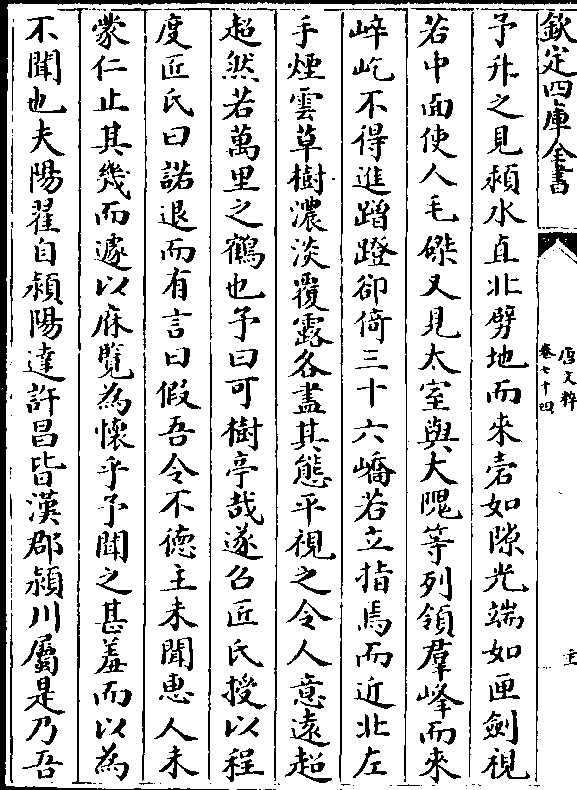 欽定四庫全書
予升之見潁水直北劈地而來砉如隙光端如匣劍視
若中面使人毛磔又見太室與大隗等列領羣峰而來
崪屹不得進蹭蹬卻倚三十六嶠若立指焉而近北左
手煙雲草樹濃淡覆露各盡其態平視之令人意遠超
超然若萬里之鶴也予曰可樹亭哉遂召匠氏授以程
度匠氏曰諾退而有言曰假吾令不德主未聞惠人未
蒙仁止其幾而遽以庥覽為懷乎予聞之甚羞而以為
不聞也夫陽翟自潁陽達許昌皆漢郡潁川屬是乃吾
唐文粹
卷七十四